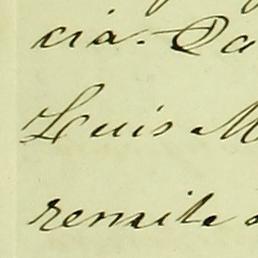 cia. Da
Luis M
remite